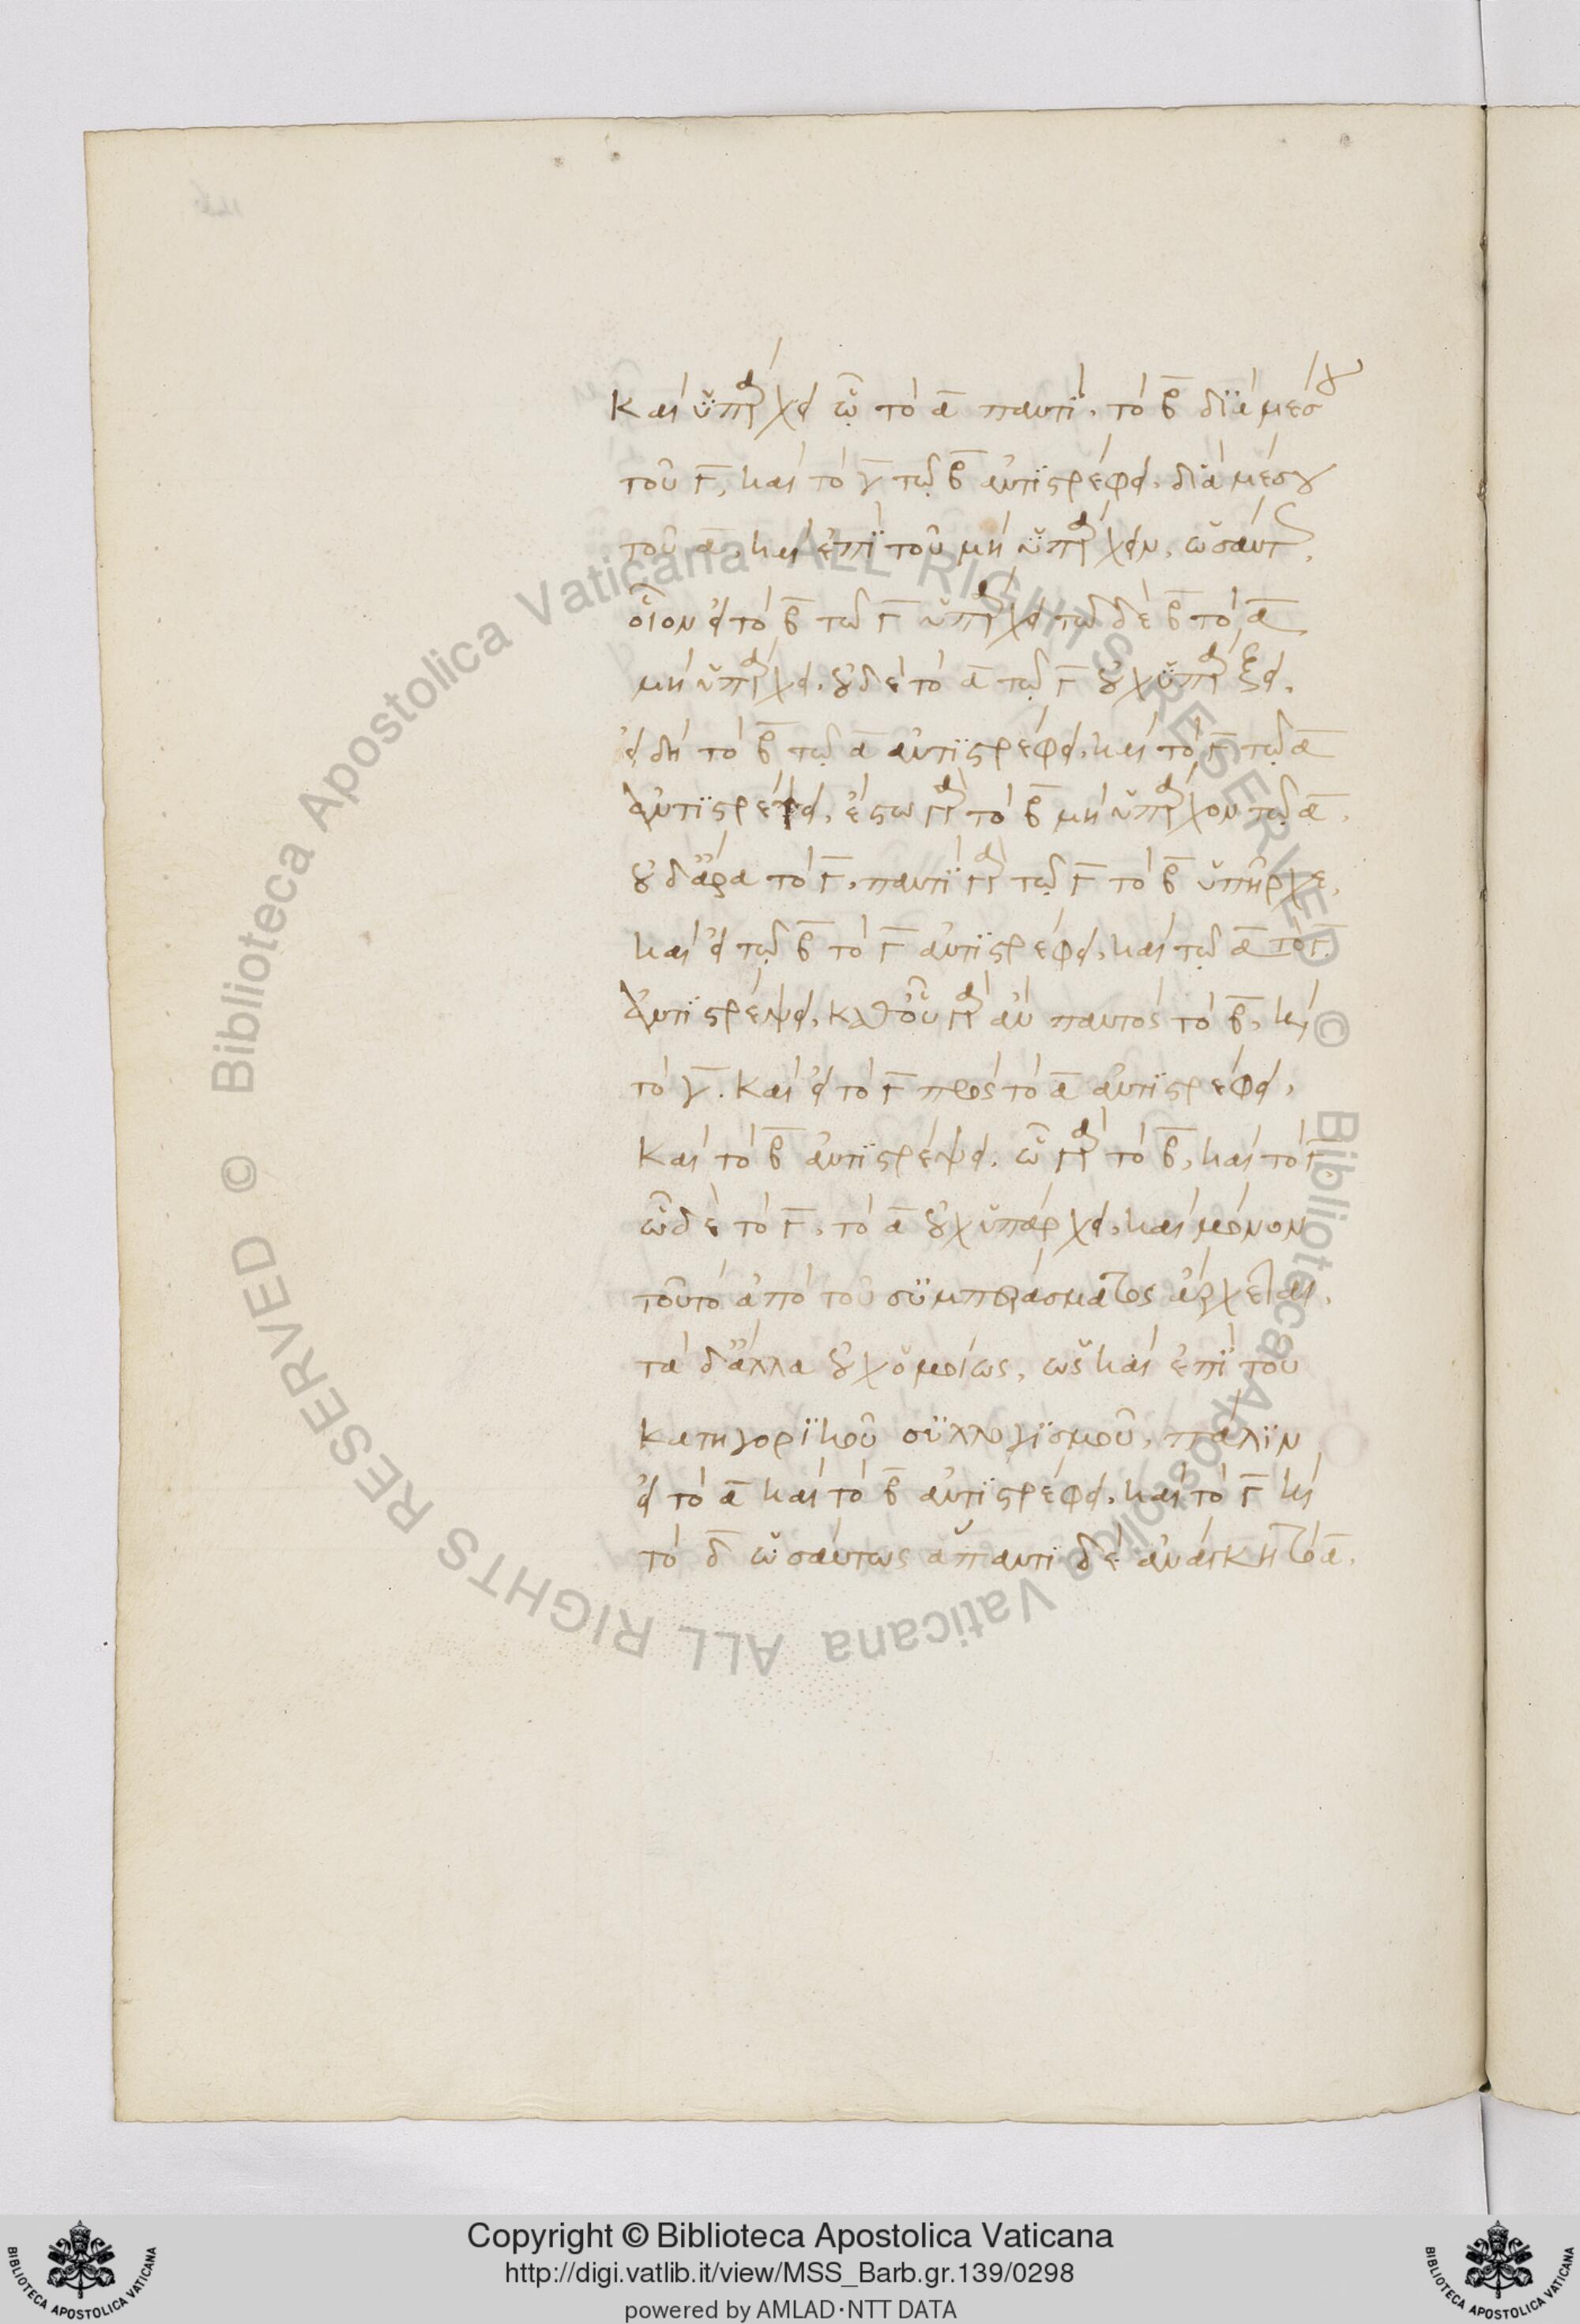 καὶ ὑπάρχει ᾧ τὸ α παντὶ, τὸ β διὰ μέσου
τοῦ Γ, καὶ τὸ γ τῷ β ἀντιστρέφει, διὰ μέσου
τοῦ α, καὶ ἐπὶ τοῦ μὴ ὑπάρχειν, ὡσαύτως,
οἷον εἰ τὸ β τῷ Γ ὑπάρχει τῷ δὲ β τὸ α
μὴ ὑπάρχει, οὐδὲ τὸ α τῷ Γ οὐχ ὑπάρξει,
εἰ δὴ τὸ β τῷ α ἀντιστρέφει, καὶ τὸ Γ τῷ α
ἀντιστρέψει, ἔστω γὰρ τὸ β μὴ ὑπάρχον τῷ α,
οὐδ' ἄρα τὸ Γ, παντὶ γὰρ τῷ Γ τὸ β ὑπῆρχε,
καὶ εἰ τῷ β τὸ Γ ἀντιστρέφει, καὶ τῷ α τὸ Γ
ἀντιστρέψει, καθ' οὗ γὰρ ἂν παντὸς τὸ β, καὶ
τὸ γ. καὶ εἰ τὸ Γ πρὸς τὸ α ἀντιστρέφει,
καὶ τὸ β ἀντιστρέψει. ᾧ γὰρ τὸ β, καὶ τὸ Γ,
ᾧ δὲ τὸ Γ, τὸ α οὐχ ὑπάρχει, καὶ μόνον
τοῦτο ἀπὸ τοῦ συμπεράσματος ἄρχεται,
τὰ δ' ἄλλα οὐχ ὁμοίως, ὡς καὶ ἐπὶ τοῦ
κατηγορικοῦ συλλογισμοῦ, πάλιν
εἰ τὸ α καὶ τὸ β ἀντιστρέφει, καὶ τὸ Γ καὶ
τὸ δ ὡσαύτως ἅπαντι δὲ ἀνάγκη τὸ α,
Copyright © Biblioteca Apostolica Vaticana
http://digi.vatlib.it/view/MSS_Barb.gr.139/0298
powered by AMLAD·NTT DATA
BIBLIOTECA APOSTOLICA VATICANA
BIBLIOTECA APOSTOLICA VATICANA
© Biblioteca Apostolica Vaticana ALL RIGHTS RESERVED © Biblioteca Apostolica Vaticana ALL RIGHTS RESERVED